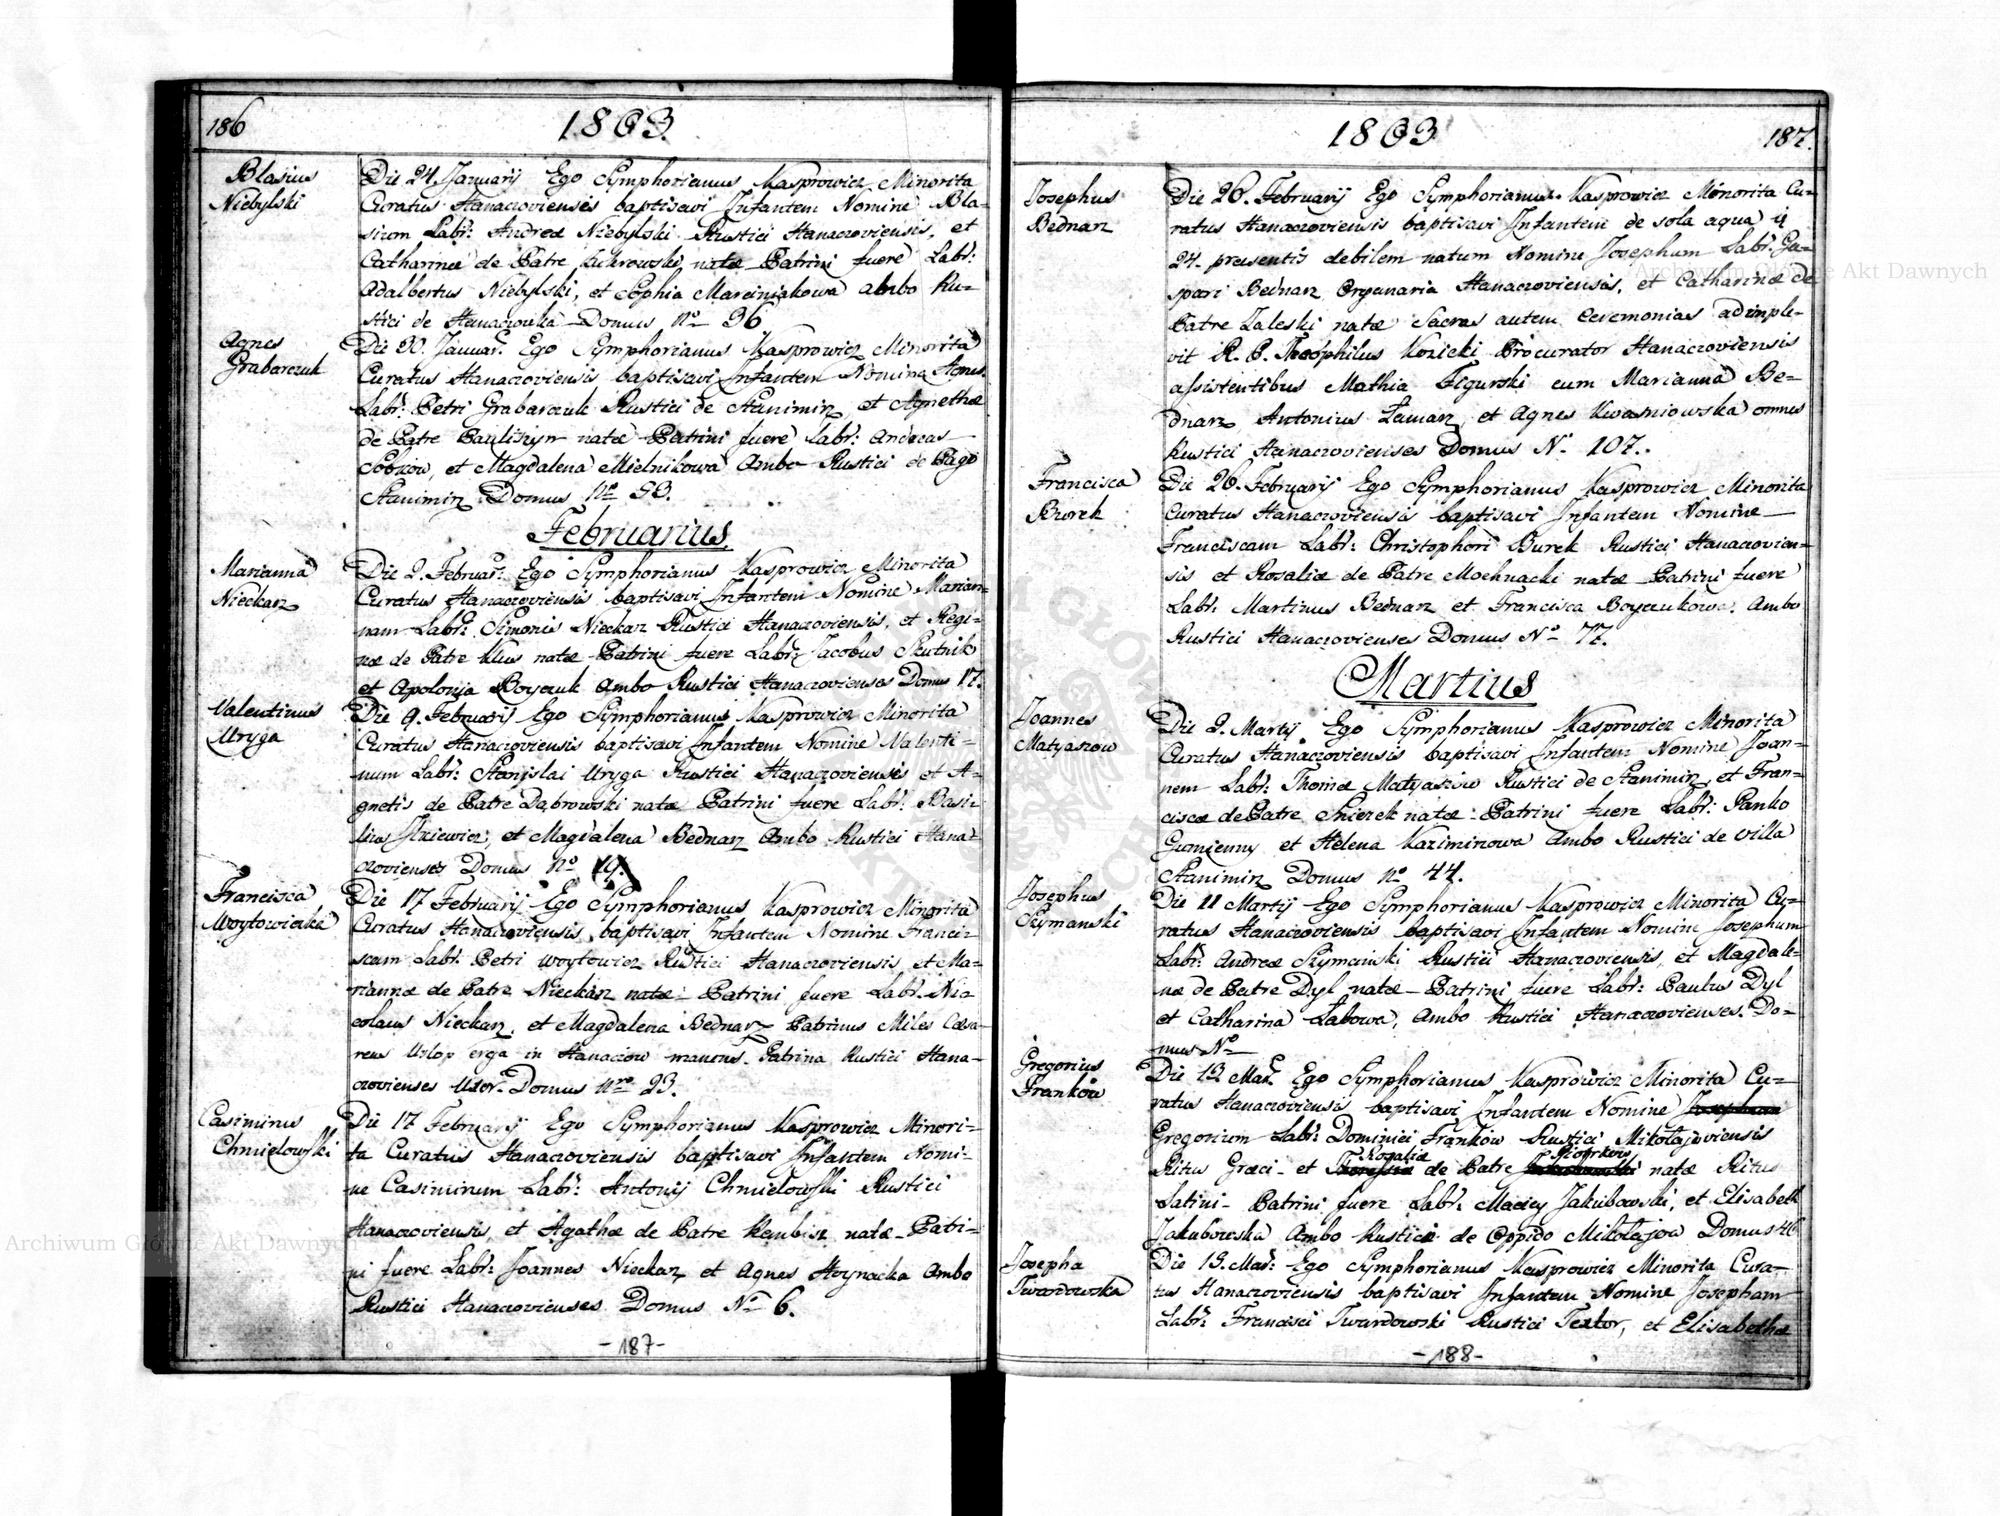 186
1803.
Blasius
Niebylski
Die 24. Januarij Ego Symphorianus Kasprowicz Minorita
Curatus Hanaczoviensis baptisavi Infantem Nomine Bla-
sium Labr: Andreæ Niebylski Rustici Hanaczoviensis, et
Catharinæ de Patre natæ Patrini fuere Labr:
Adalbertus Niebylski, et Sophia Marciniakowa ambo Ru-
stici de Hanaczowka Domus No 36
Agnes
Grabarczuk
Die 30. Januar: Ego Symphorianus Kasprowicz Minorita
Curatus Hanaczoviensis baptisavi Infantem Nomine Agnes.
Labr: Petri Grabarczuk Rustici de Stanimirz et Agnethæ
de Patre Pauliszyn natæ Patrini fuere Labr: Andreas
Sobkow, et Magdalena Mielnikowa Ambo Rustici de Pago
Stanimirz Domus No 53.
Februarius.
Marianna
Nieckarz
Die 2. Februar: Ego Symphorianus Kasprowicz Minorita
Curatus Hanaczoviensis baptisavi Infantem Nomine Marian-
nam Labr: Simonis Nieckar Rustici Hanaczoviensis, et Regi-
næ de Patre Klus natæ Patrini fuere Labr: Jacobus Skutnik
et Apolonija Boyczuk Ambo Rustici Hanaczovienses Domus 17.
Valentinus
Uryga
Die 9. Februarij Ego Symphorianus Kasprowicz Minorita
Curatus Hanaczoviensis baptisavi Infantem Nomine Valenti-
num Labr: Stanislai Uryga Rustici Hanaczoviensis et A-
gnetis de Patre Dąbrowski natæ Patrini fuere Labr: Basi-
lius et Magdalena Bednarz Ambo Rustici Hana-
czovienses Domus No 19.
Francisca
Woytowiczka
Die 17 Februarij Ego Symphorianus Kasprowicz Minorita
Curatus Hanaczoviensis baptisavi Infantem Nomine Francis-
scam Labr. Petri Woytowicz Rustici Hanaczoviensis et Ma-
riannæ de Patre Nieckarz natæ- Patrini fuere Labr. Nic-
colaus Nieckarz, et Magdalena Bednarz Patrinus Miles Cæsa-
reus Urlop erga in Hanaczow manens. Patrina Rustici Hana-
czovienses Uxor. Domus Nro 23.
Casimirus
Chmielowski
Die 17 Februarij Ego Symphorianus Kasprowicz Minori-
ta Curatus Hanaczoviensis baptisavi Infantem Nomi-
ne Casimirum Labr: Antonij Chmielowski Rustici
Hanaczoviensis, et Agathæ de Patre Kembisz natæ- Patri-
ni fuere Labr: Joannes Nieckarz et Agnes Hoynacka Ambo
Rustici Hanaczovienses Domus No 6.
-187-
1803
187.
Josephus
Bednarz
Die 26. Februarij Ego Symphorianus Kasprowicz Minorita Cu-
ratus Hanaczoviensis baptisavi Infantem de sola aqua
24. præsentis debilem natum Nomine Josephum Labr. Ga-
spari Bednarz Hanaczoviensis, et Catharinæ de
Patre Zaleski natæ Sacras autem Ceremonias adimple-
vit R. P. Theophilus Kozicki Procurator Hanaczoviensis
assistentibus Mathia Figurski cum Marianna Be-
dnarz Antonius et Agnes Kwasniowska omnes
Rustici Hanaczovienses Domus N. 107.
Francisca
Burek
Die 26. Februarij Ego Symphorianus Kasprowicz Minorita
Curatus Hanaczoviensis baptisavi Infantem Nomine
Franciscam Labr: Christophori Burek Rustici Hanaczovien-
sis et Rosaliæ de Patre Mochnacki natæ Patrini fuere
Labr. Martinus Bednarz et Francisca Boyczukowa, Ambo
Rustici Hanaczovienses Domus No 77.
Martius
Joannes
Matyaszow
Die 2. Martij Ego Symphorianus Kasprowicz Minorita
Curatus Hanaczoviensis baptisavi Infantem Nomine Joan-
nem Labr: Thomæ Matyaszow Rustici de Stanimirz, et Fran-
ciscæ de Patre natæ Patrini fuere Labr: Panko
Gumienny et Helena Kazimirowa Ambo Rustici de Villa
Stanimirz Domus No 44.
Josephus
Szymanski
Die 11 Martij Ego Symphorianus Kasprowicz Minorita Cu-
ratus Hanaczoviensis baptisavi Infantem Nomine Josephum
Labr. Andreæ Szymanski Rustici Hanaczoviensis, et Magdale-
næ de Patre Dyl natæ- Patrini fuere Labr: Paulus Dyl
et Catharina Łabowa, Ambo Rustici Hanaczovienses. Do-
mus No
Gregorius
Franków
Die 13 Mar: Ego Symphorianus Kasprowicz Minorita Cu-
ratus Hanaczoviensis baptisavi Infantem Nomine Josephum
Gregorium Labr: Dominici Franków Rustici Mikołajoviensis
Rosaliæ Piotrkow
Ritus Græci- et Theresiæ de Patre Jakubowski natæ Ritus
Latini- Patrini fuere Labr: Maciey Jakubowski, et Elisabeth
Jakubowska Ambo Rustici de Oppido Mikołajow Domus 46
Josepha
Twardowska
Die 13. Mar: Ego Symphorianus Kasprowicz Minorita Cura-
tus Hanaczoviensis baptisavi Infantem Nomine Josepham
Labr: Francisci Twardowski Rustici Textor, et Elisabethæ
-188-
Archiwum Główne Akt Dawnych
Archiwum Główne Akt Dawnych